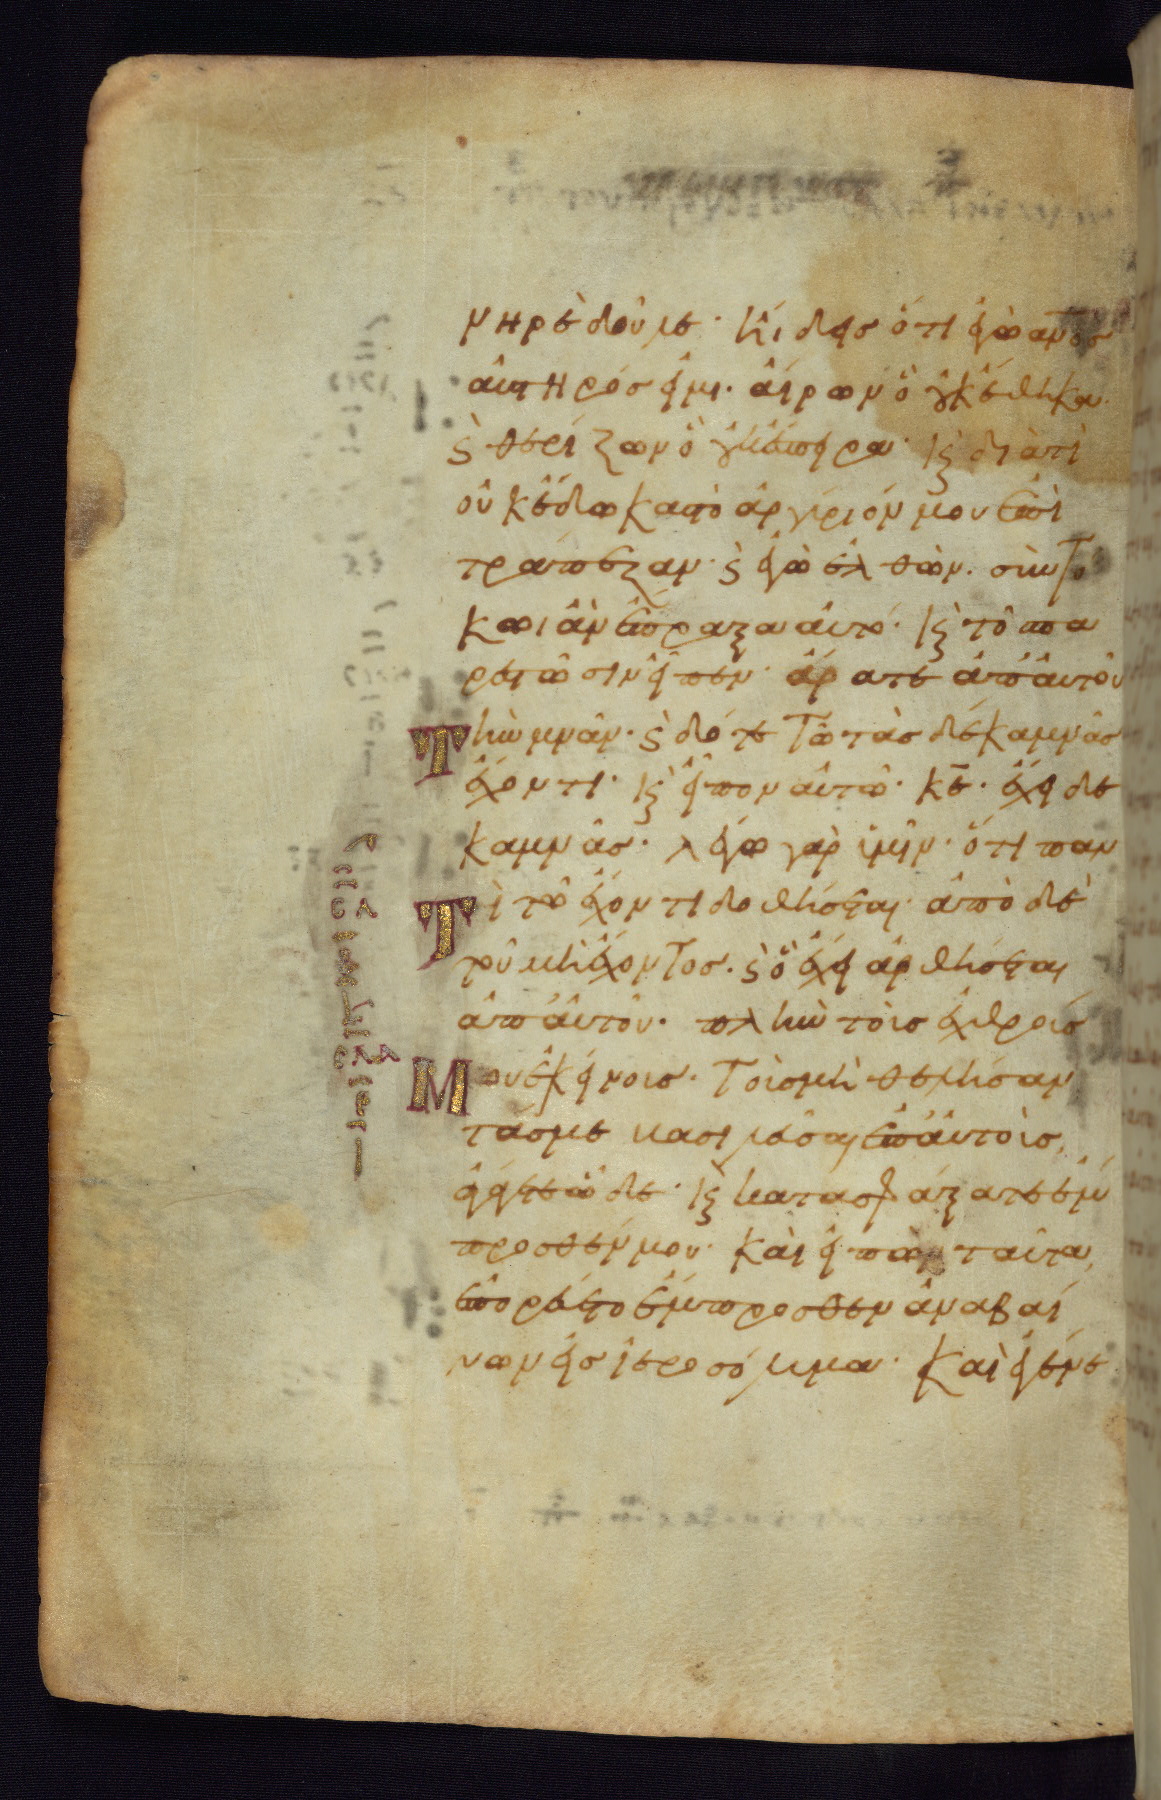 νηρὲ δοῦλε· ἤιδεις ὅτι ἐγὼ ἄνος
αὐστηρός εἰμι· αἴρων ὃ οὐκ ἔθηκα
ϛ θερίζων ὃ οὐκ ἔσπειρα· κϛ διατί
οὐκ ἔδωκας τὸ ἀργύριόν μου ἐπὶ
τράπεζαν· ϛ ἐγὼ ἐλθὼν. σὺν τό
κωι ἂν ἔπραξα αὐτό· κϛ τοῖς πα
ρεστῶσιν εἶπεν· ἄρατε ἀπ' αὐτοῦ
Τὴν μνᾶν· ϛ δότε τῶ τὰς δέκα μνᾶς
ἔχοντι· κϛ εἶπον αὐτῶ· κε· ἔχει δέ
κα μνᾶς· λέγω γὰρ ὑμῖν· ὅτι παν
Τὶ τῶ ἔχοντι δοθήσεται· ἀπὸ δὲ
τοῦ μὴ ἔχοντος· ϛ ὃ ἔχει ἀρθήσεται
ἀπ' αὐτοῦ· πλὴν τοὺς ἐχθροὺς
Μου ἐκείνους· τοὺς μὴ θελήσαν
τάς με βασιλεῦσαι ἐπ' αὐτοὺς,
ἀγάγετε ὧδε· κϛ κατασφάξατε ἔμ
προσθέν μου· καὶ εἰπὼν ταῦτα,
ἐπορεύετο ἔμπροσθεν ἀναβαί
νων εἰς ἱεροσόλυμα· καὶ ἐγένε